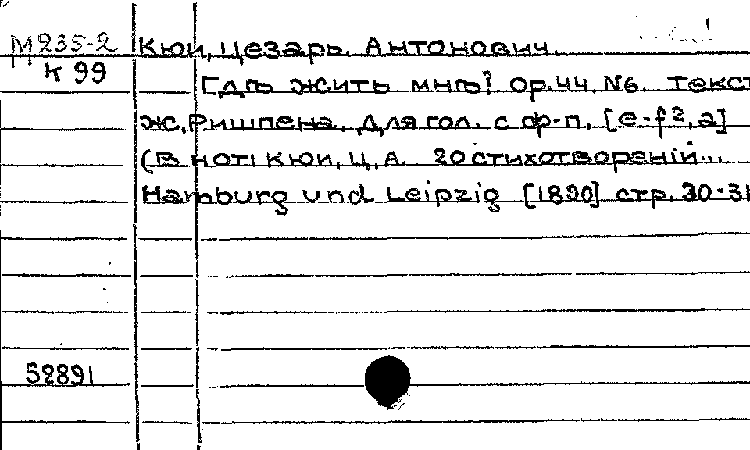 М235-2 Кюи, Цезарь Антонович.
К 99
Гдѣ жить мнѣ? ор.44, N6. Текст
Ж. Ришпена. Для гол. с ф-п. [e-f², a]
(В нот: Кюи, Ц. А. 20 стихотвореній...
Hamburg und Leipzig [1890] стр. 30-31
52891